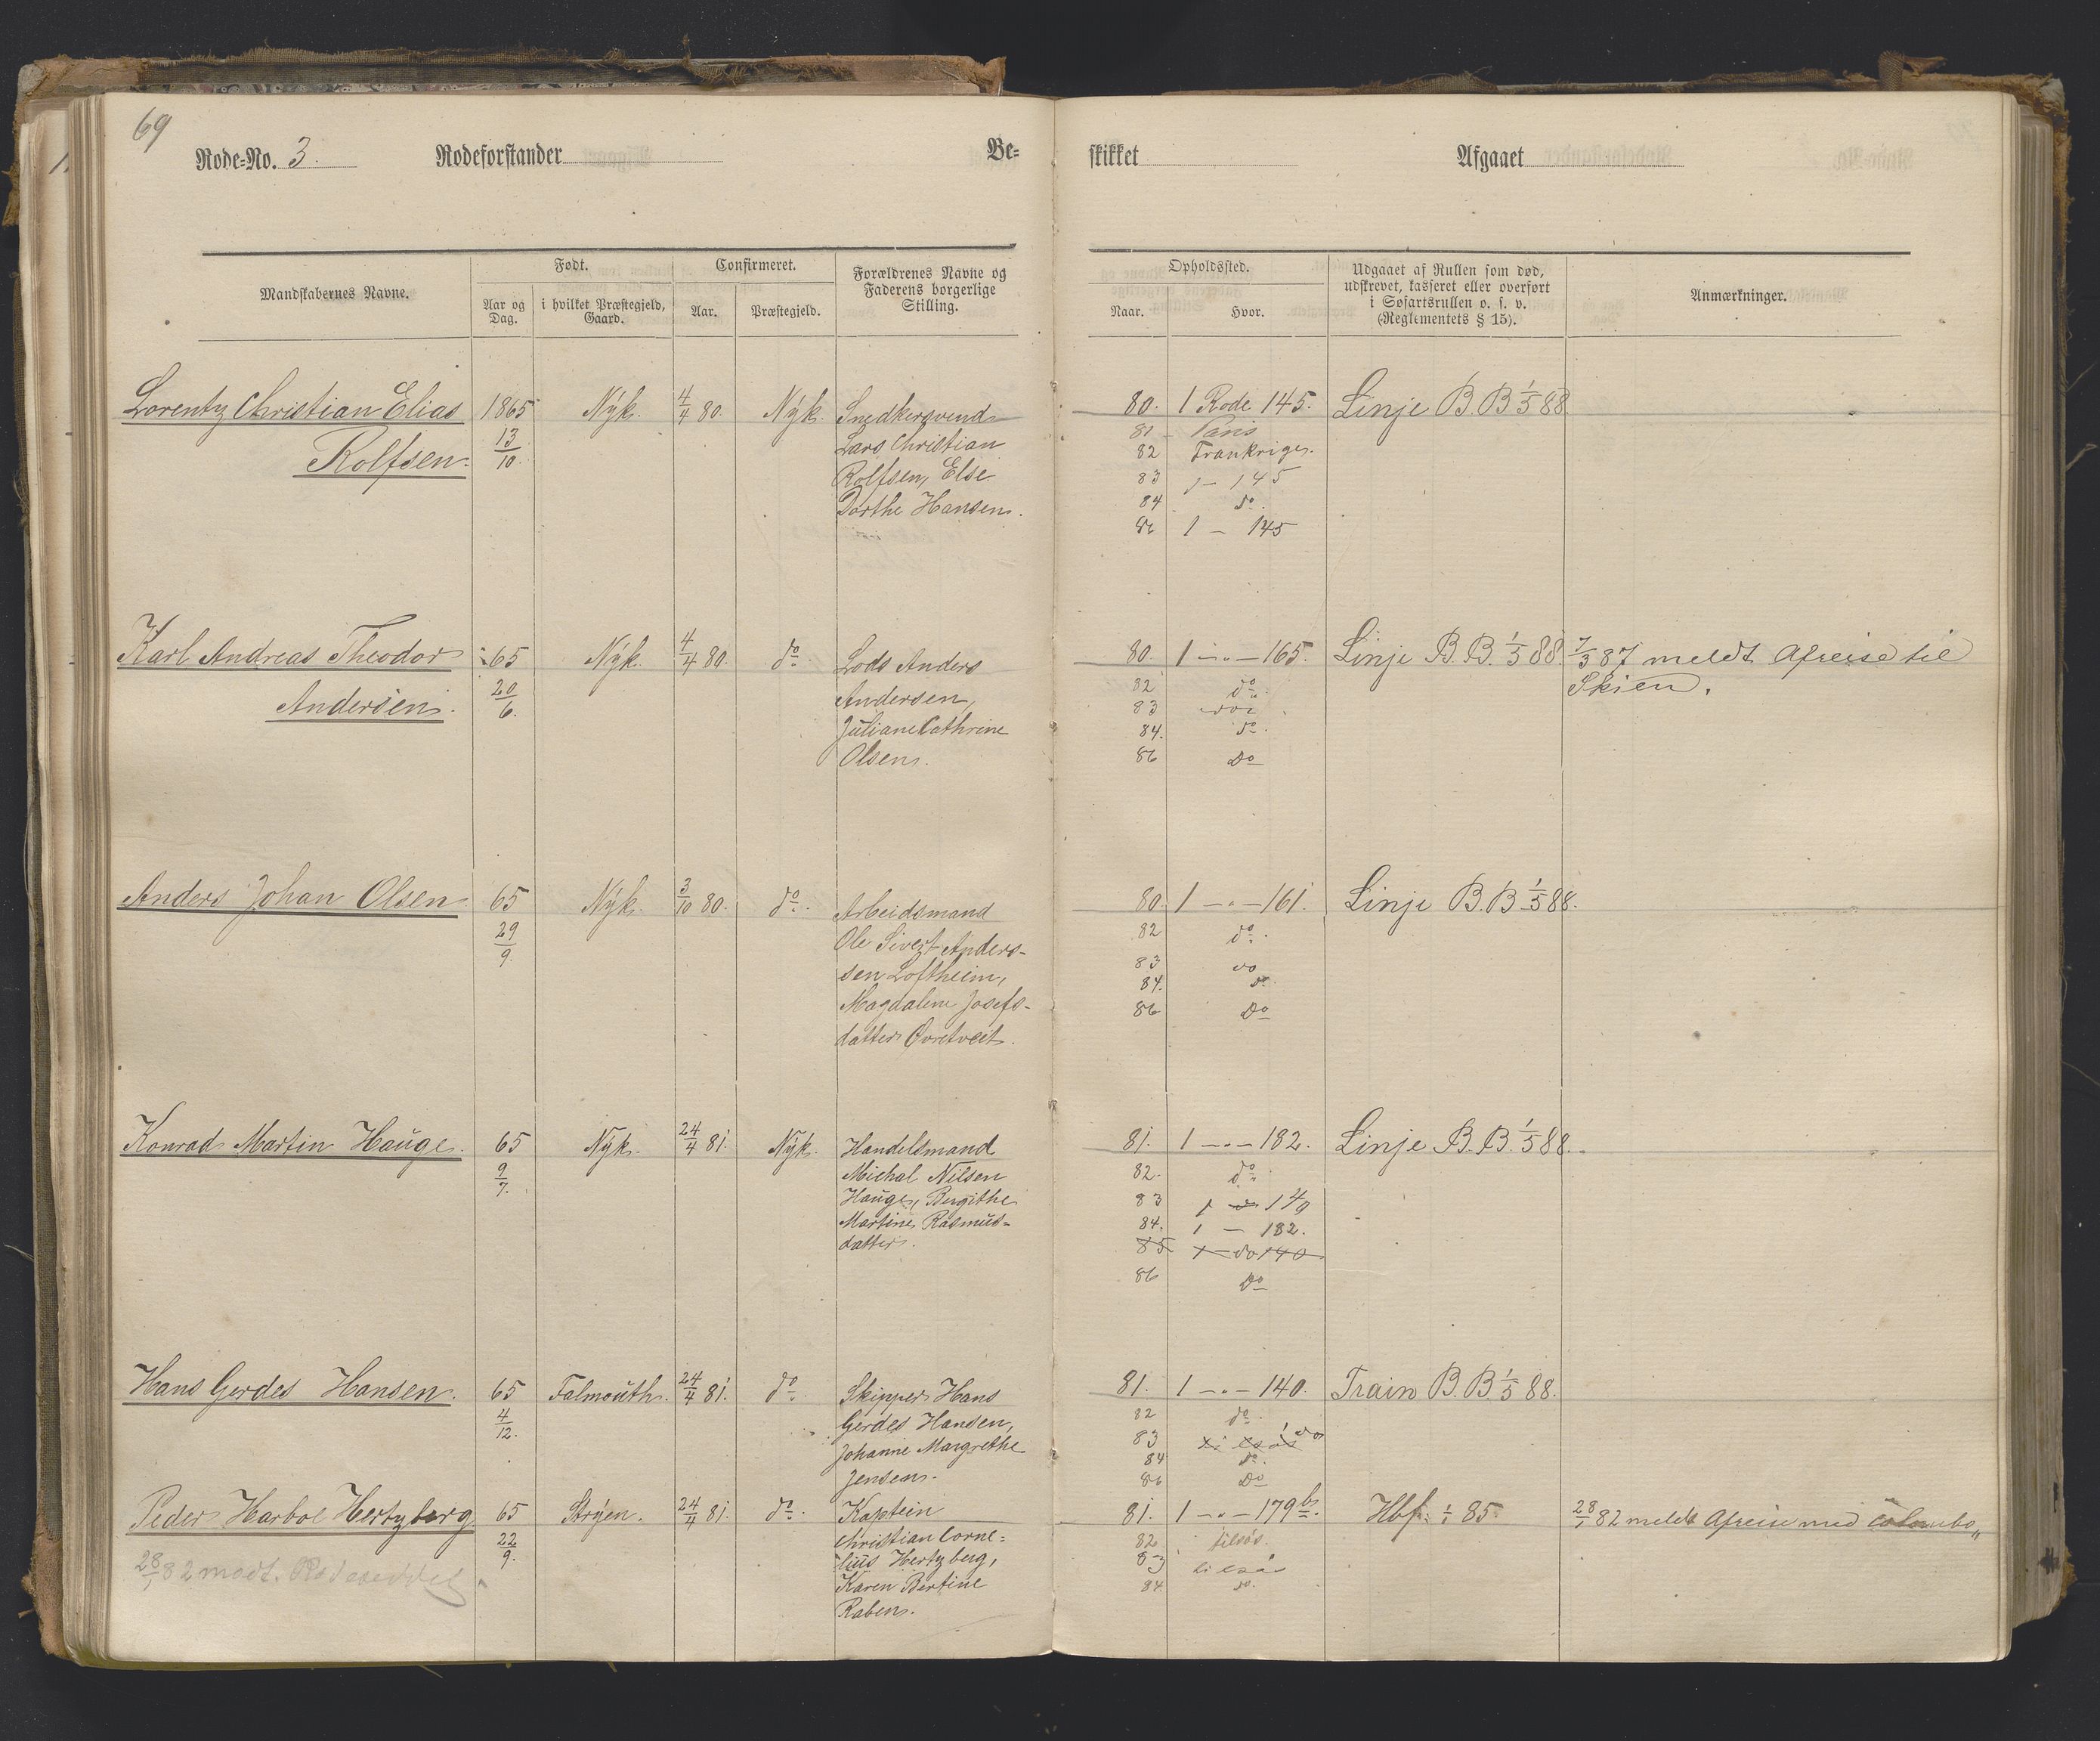 69
Rode-No. 3. Rodeforstander Be-
skikket Afgaaet
Mandskabernes Navne. Født. Confirmeret. Forældrenes Navne og Faderens borgerlige Stilling.
Aar og Dag. i hvilket Præstegjeld, Gaard. Aar. Præstegjeld.
Opholdssted. Udgaaet af Rullen som død, udskrevet, kasseret eller overført i Søfartsrullen o. s. v. (Reglementets § 15). Anmærkninger.
Naar. Hvor.
Lorentz Christian Elias 1865 Nyk. 4/4 80. Nyk. Snedkersvend
Rolfsen. 13/10. Lars Christian
Rolfsen, Else
Dorthe Hansen.
80. 1 Rode 145. Linje B. B 1/5 88.
81 Paris
82 Frankrige.
83 1 - 145
84 do.
86 1 - 145
Karl Andreas Theodor 65 Nyk. 4/4 80. do. Lods Anders
Andersen. 20/6. Andersen,
Juliane Cathrine
Olsen.
80. 1 -"- 165. Linje B. B. 1/5 88 7/3 87 meldt Afreise til
82 do. Skien.
83 do
84. do.
86 Do
Anders Johan Olsen 65 Nyk. 3/10 80. do. Arbeidsmand
29/9. Ole Sivert Anders-
sen Loftheim,
Magdalene Josefs-
datter Øvretveit.
80. 1 -"- 161. Linje B. B 1/5 88.
82 do.
83 do
84. do.
86 Do
Konrad Martin Hauge. 65 Nyk. 24/4 81. Nyk. Handelsmand
9/7. Michal Nilsen
Hauge, Birgithe
Martine Rasmus-
datter.
81. 1 -"- 182. Linje B. B. 1/5 88.
82. do.
83 1 do 149
84. 1 - 182.
85 1 - do 140
86 Do
Hans Gerdes Hansen. 65 Falmouth. 24/4 81. do. Skipper Hans
4/12. Gerdes Hansen,
Johanne Margrethe
Jensen.
81. 1 -"- 140. Train B. B. 1/5 88.
82 do.
83 tilsøs do
84 do.
86 Do
Peder Harboe Hertzberg. 65 Stryen. 24/4 81. do. Kaptein
28/1 82 modt. Rodeseddel 22/9. Christian Corne-
lius Hertzberg,
Karen Bertine
Raben.
81. 1 -"- 179 b. Hbf. 1/1 85. 28/1 82 meldt Afreise med Colombo"
82 tilsøs.
83 tilsøs
84 do.